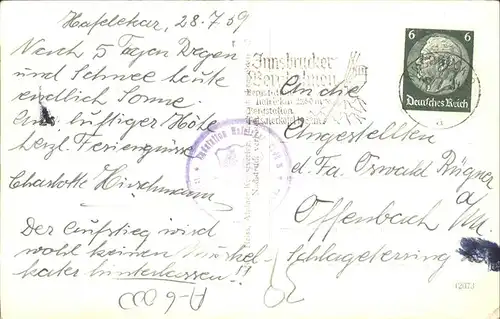 Hafelekar, 28.7.39
Nach 5 Tagen Regen
und Schnee heute
endlich Sonne.
Aus luftiger Höhe
herzl. Feriengrüsse
Charlotte Hirschmann
Der Aufstieg wird
wohl keinen Muskel-
kater hinterlassen!!
A-6
Innsbrucker
6 6
Deutsches Reich
An die
Angestellten
d. Fa. Oswald Rügner
Offenbach a/M.
Schlageterring